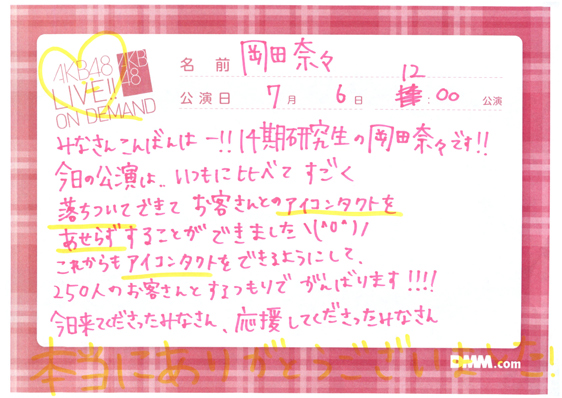 AKB48
LIVE!!
ON DEMAND
AKB
48
名 前 岡田奈々
公演日 7月 6日 12:00 公演
みなさんこんばんはー!!14期研究生の岡田奈々です!!
今日の公演は..いつもに比べてすごく
落ちついてできてお客さんとのアイコンタクトを
あせらずすることができました\(^o^)/
これからもアイコンタクトをできるようにして、
250人のお客さんとするつもりでがんばります!!!!
今日来てくださったみなさん、応援してくださったみなさん
本当にありがとうございました!
DMM.com